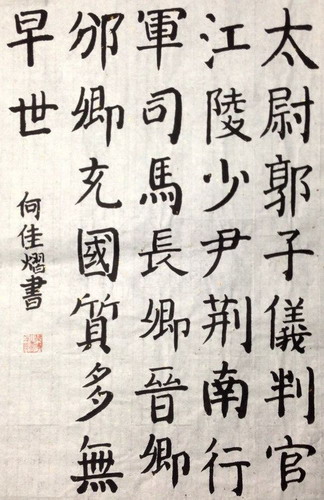 太尉郭子儀判官
江陵少尹荆南行
軍司馬長卿晉卿
邠卿充國質多無
早世
何佳熠書